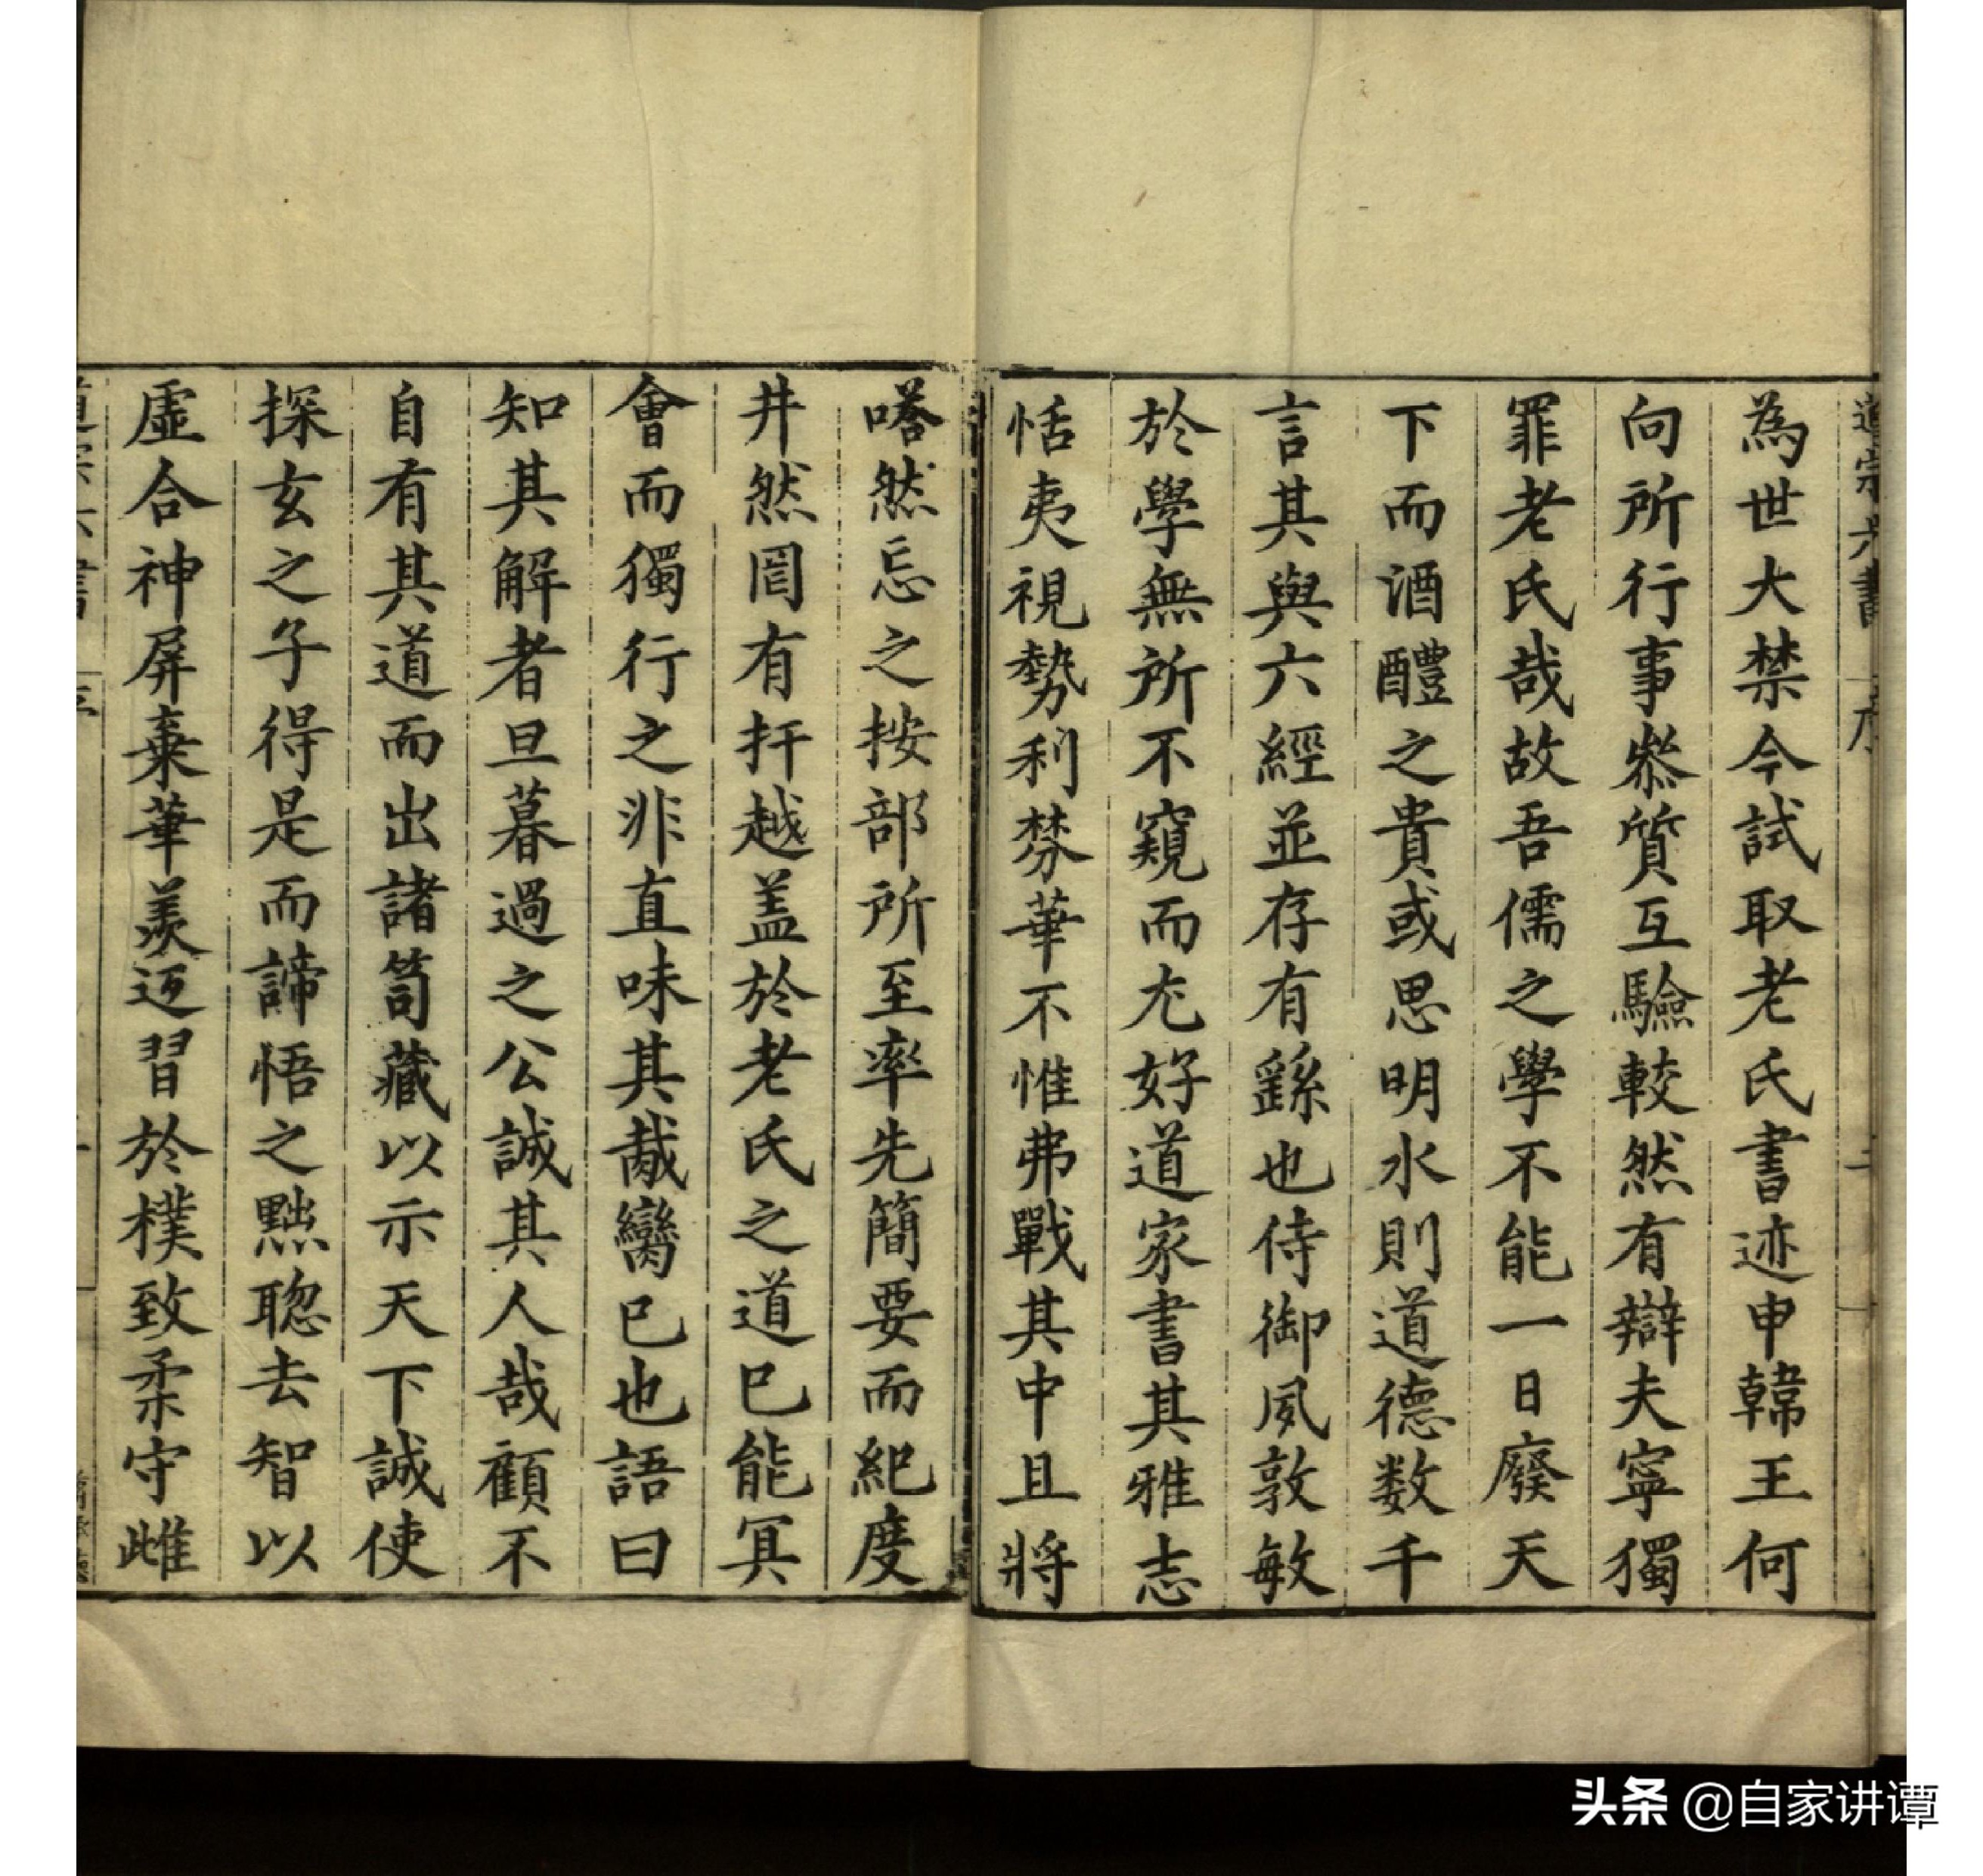 道宗六書 序 二
為世大禁今試取老氏書迹申韓王何
向所行事叅質互驗較然有辯夫寧獨
罪老氏哉故吾儒之學不能一日廢天
下而酒醴之貴或思明水則道德数千
言其與六經並存有繇也侍御夙敦敏
於學無所不窺而尤好道家書其雅志
恬夷視勢利棼華不惟弗戰其中且將
嗒然忘之按部所至率先簡要而紀度
井然罔有扞越盖於老氏之道已能冥
會而獨行之非直味其胾臠已也語曰
知其解者旦暮遇之公誠其人哉顧不
自有其道而出諸笥藏以示天下誠使
探玄之子得是而諦悟之黜聦去智以
虛合神屏棄華羡迈習於樸致柔守雌
道宗六書 序
头条 @自家讲谭